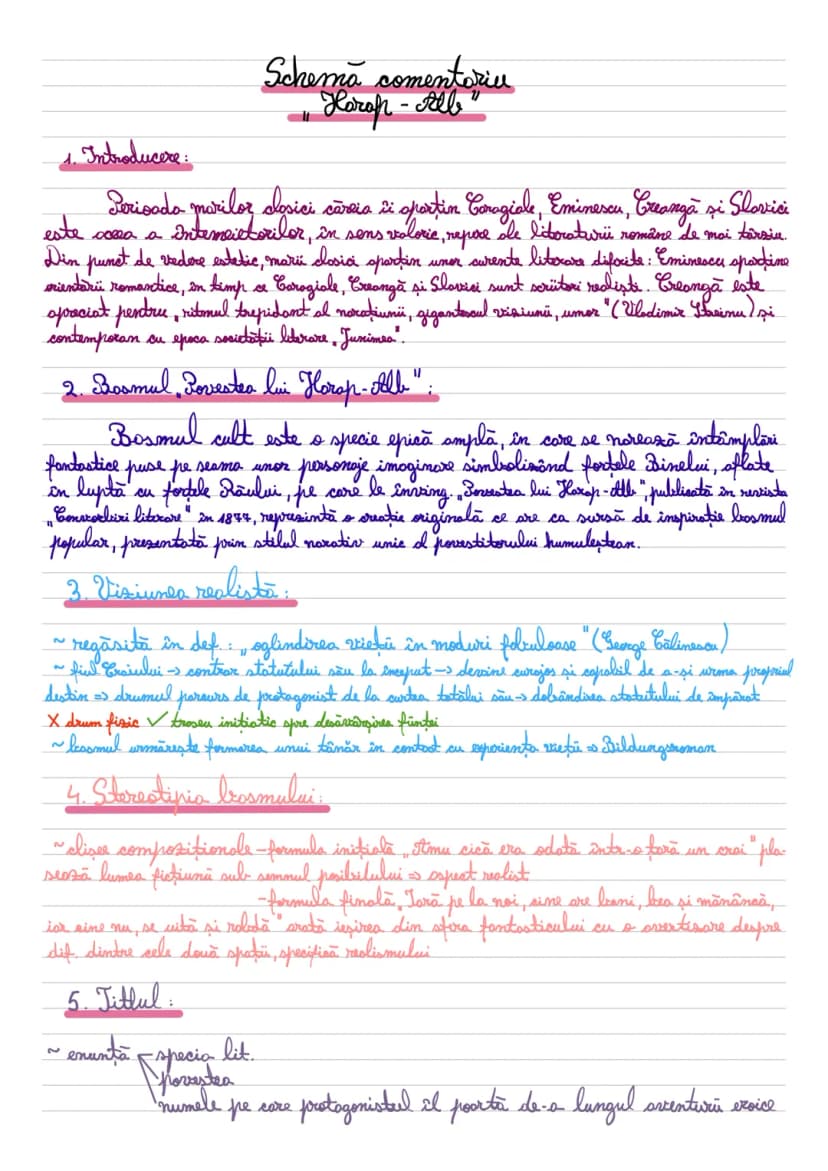 Schemă comentariu
„Harap - Alb"
1. Introducere:
Perioada marilor clasici căreia îi aparțin Caragiale, Eminescu, Creangă și Slavici
este aceea a întemeietorilor, în sens valoric, repere ale literaturii române de mai târziu.
Din punct de vedere estetic, marii clasici aparțin unor curente literare diferite: Eminescu aparține
orientării romantice, în timp ce Caragiale, Creangă și Slavici sunt scriitori realiști. Creangă este
apreciat pentru „ritmul trepidant al narațiunii, gigantescul viziunii, umor" (Vladimir Streinu) și
contemporan cu epoca societății literare „Junimea".
2. Basmul „Povestea lui Harap-Alb":
Basmul cult este o specie epică amplă, în care se narează întâmplări
fantastice puse pe seama unor personaje imaginare simbolizând forțele Binelui, aflate
în luptă cu forțele Răului, pe care le înving. „Povestea lui Harap-Alb", publicată în revista
„Convorbiri literare" în 1877, reprezintă o creație originală ce are ca sursă de inspirație basmul
popular, prezentată prin stilul narativ unic al povestitorului humuleștean.
3. Viziunea realistă:
~ regăsită în def.: „oglindirea vieții în moduri fabuloase" (George Călinescu)
~ fiul Craiului → contrar statutului său la început → devine curajos și capabil de a-și urma propriul
destin ⇒ drumul parcurs de protagonist de la curtea tatălui său → dobândirea statutului de împărat
X drum fizic ✓ traseu inițiatic spre desăvârșirea ființei
~ basmul urmărește formarea unui tânăr în contact cu experiența vieții ⇒ Bildungsroman
4. Stereotipia basmului:
~ clișee compoziționale - formula inițială „Amu cică era odată într-o țară un crai" pla-
sează lumea ficțiunii sub semnul posibilului ⇒ aspect realist
- formula finală „Iară pe la noi, cine are bani, bea și mănâncă,
iar cine nu, se uită și rabdă" arată ieșirea din sfera fantasticului cu o avertisare despre
dif. dintre cele două spații, specifică realismului
5. Titlul:
~ enunță specia lit.
povestea
numele pe care protagonistul îl poartă de-a lungul aventurii eroice